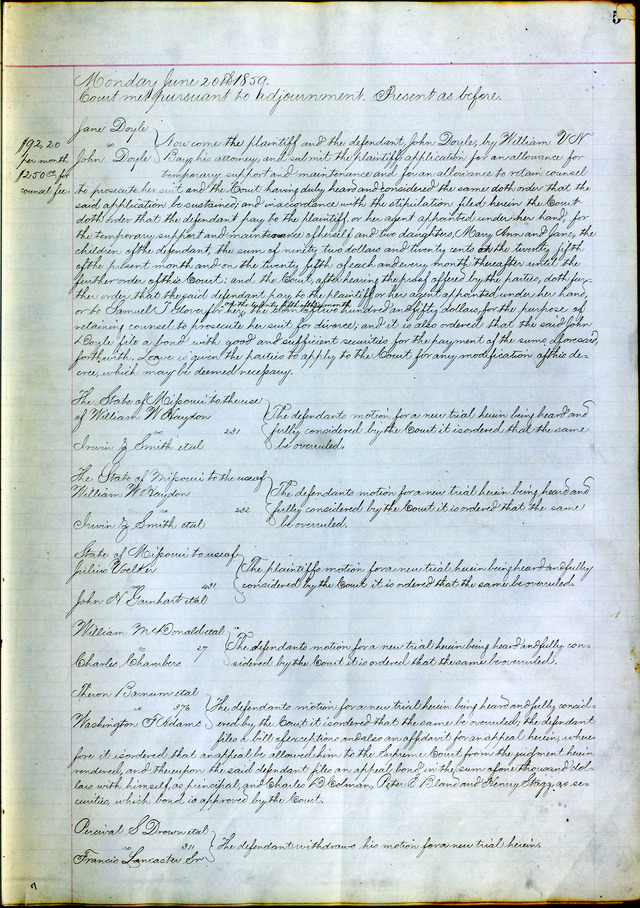 5
Monday June 20th 1859.
Court met pursuant to adjournment. Present as before.
Jane Doyle
vs
John Doyle
$92,20
per month
$250.00 for
counsel fee.
Now come the plaintiff and the defendant, John Doyle, by William V N
Bay, his attorney, and submit the plaintiffs application for an allowance for
temporary support and maintenance and for an allowance to retain counsel
to prosecute her suit and the Court having duly heard and considered the same doth order that the
said application be sustained; and in accordance with the stipulation filed herein the Court
doth order that the defendant pay to the plaintiff or her agent appointed under her hand, for
the temporary support and maintenance of herself and two daughters, Mary Ann and Jane, the
children of the defendant, the sum of ninety two dollars and twenty cents on the twenty fifth
of the present month and on the twenty fifth of each and every month thereafter until the
further order of this Court: and the Court, after hearing the proof offered by the parties, doth fur-
ther order that the said defendant pay to the plaintiff or her agent appointed under her hand,
or to Samuel T Glover for her, on the twenty fifth of this month the sum of two hundred and fifty dollars, for the purpose of
retaining counsel to prosecute her suit for divorce; and it is also ordered that the said John
Doyle file a bond with good and sufficient securities for the payment of the sums aforesaid,
forthwith. Leave is given the parties to apply to the Court for any modification of this de-
cree, which may be deemed necessary.
The State of Missouri to the use
of William W Haydon
vs 231
Irwin Z Smith et al
The defendants motion for a new trial herein being heard and
fully considered by the Court it is ordered that the same
be overruled.
The State of Missouri to the use of
William W Haydon
vs 232
Irwin Z Smith et al
The defendants motion for a new trial herein being heard and
fully considered by the Court it is ordered that the same
be overruled.
State of Missouri to use of
Julius Voelkn
vs 431
John H Gainhart et al
The plaintiffs motion for a new trial herein being heard and fully
considered by the Court it is ordered that the same be overruled.
William McDonald et al
vs 27
Charles Chambers
The defendants motion for a new trial herein being heard and fully con-
sidered by the Court it is ordered that the same be overruled.
Theron Barnum et al
vs 376
Washington T Adams
The defendants motion for a new trial herein being heard and fully consid-
ered by the Court it is ordered that the same be overruled; the defendant
files a bill of exceptions and also an affidavit for an appeal herein; where-
fore it is ordered that an appeal be allowed him to the Supreme Court from the judgment herein
rendered, and thereupon the said defendant files an appeal bond in the sum of one thousand dol-
lars with himself, as principal, and Charles D Colman, Peter E Bland and Henry Stagg, as se-
curities, which bond is approved by the Court.
Percival S Drown et al
vs 311
Francis Lancaster Sr
The defendant withdraws his motion for a new trial herein.